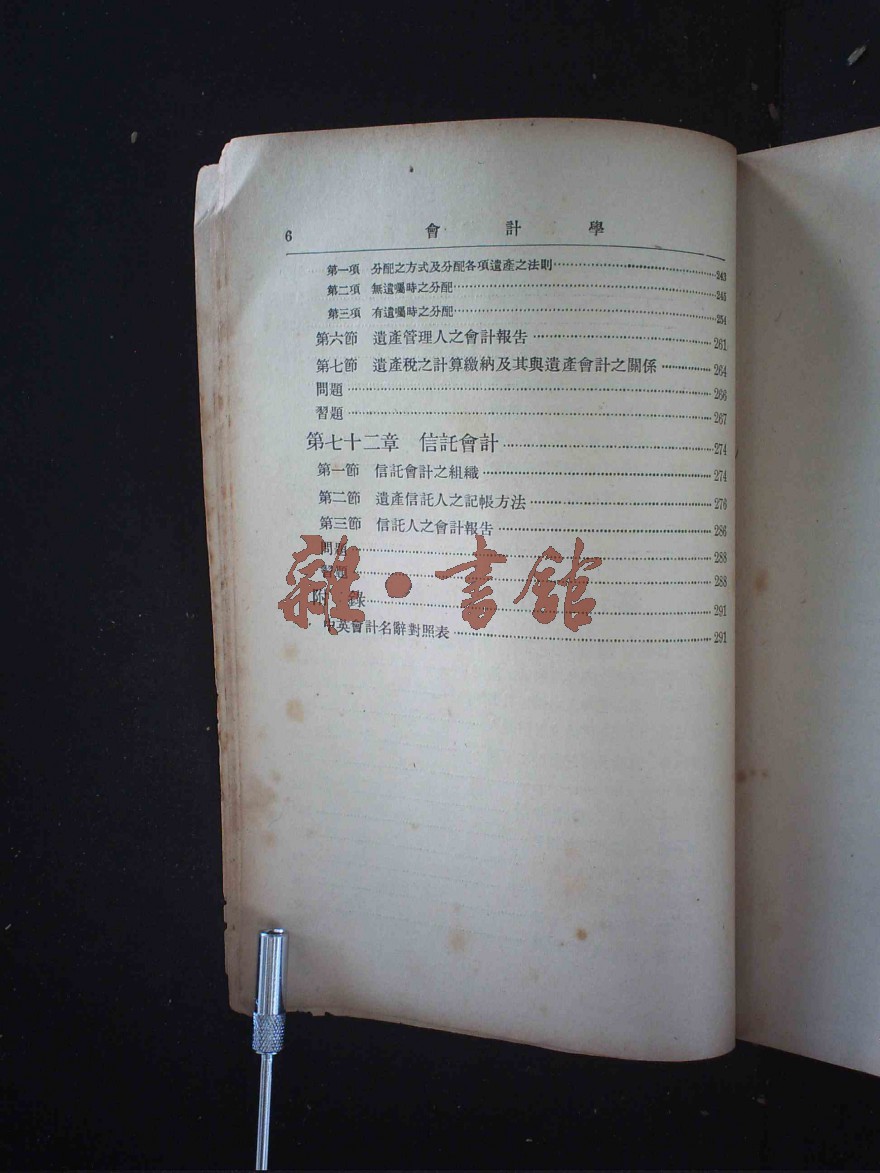 6 會計學
第一項 分配之方式及分配各項遺產之法則 243
第二項 無遺囑時之分配 245
第三項 有遺囑時之分配 254
第六節 遺產管理人之會計報告 261
第七節 遺產稅之計算繳納及其與遺產會計之關係 264
問題 266
習題 267
第七十二章 信託會計 274
第一節 信託會計之組織 274
第二節 遺產信託人之記帳方法 276
第三節 信託人之會計報告 286
問題 288
習題 288
附錄 291
中英會計名辭對照表 291
雜·書館